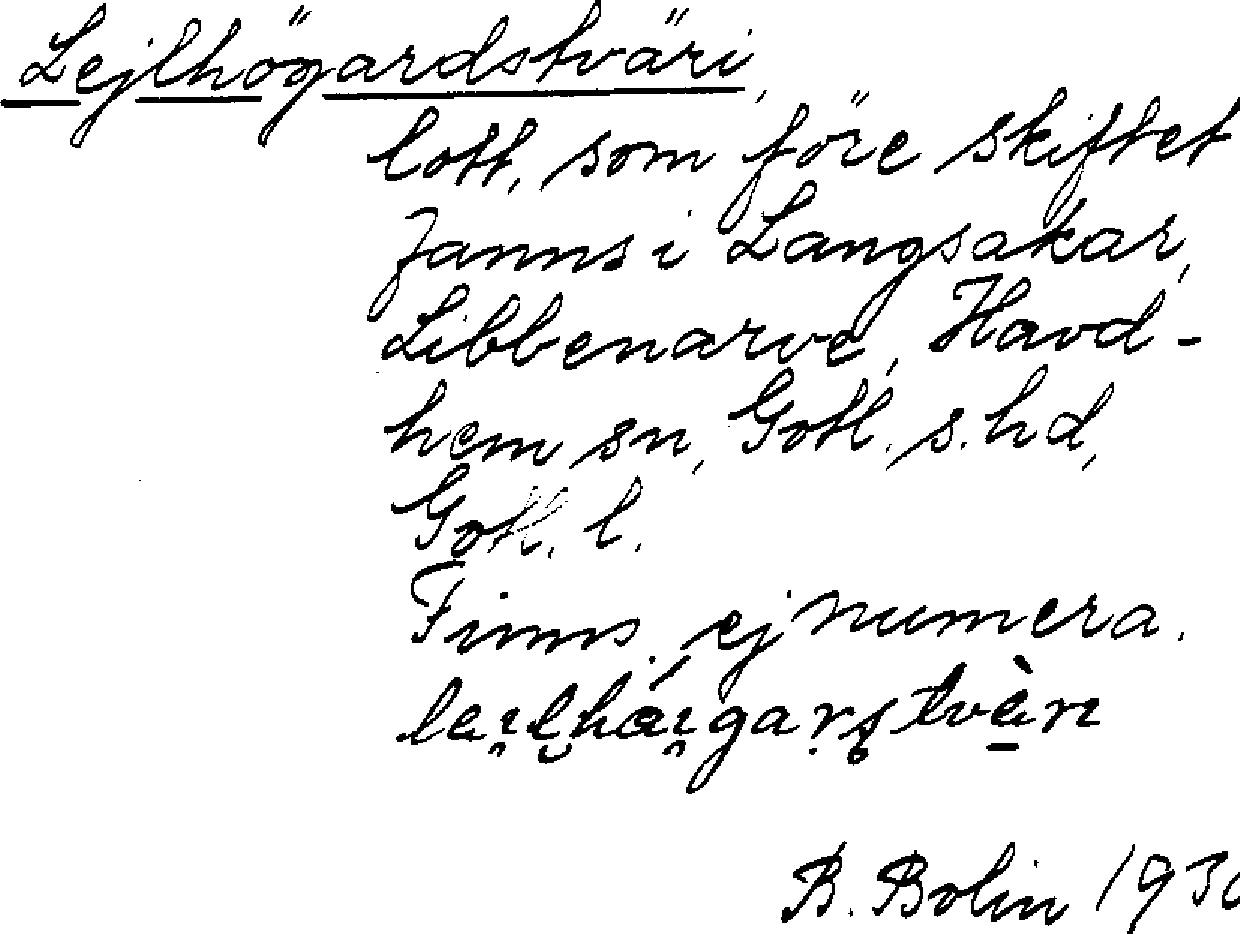 Lejlhögardstväri,
lott, som före skiftet
fanns i Langsakar,
Libbenarve, Havd-
hem sn, Gotl. s. hd,
Gotl. l.
Finns ej numera.
B. Bolin 193